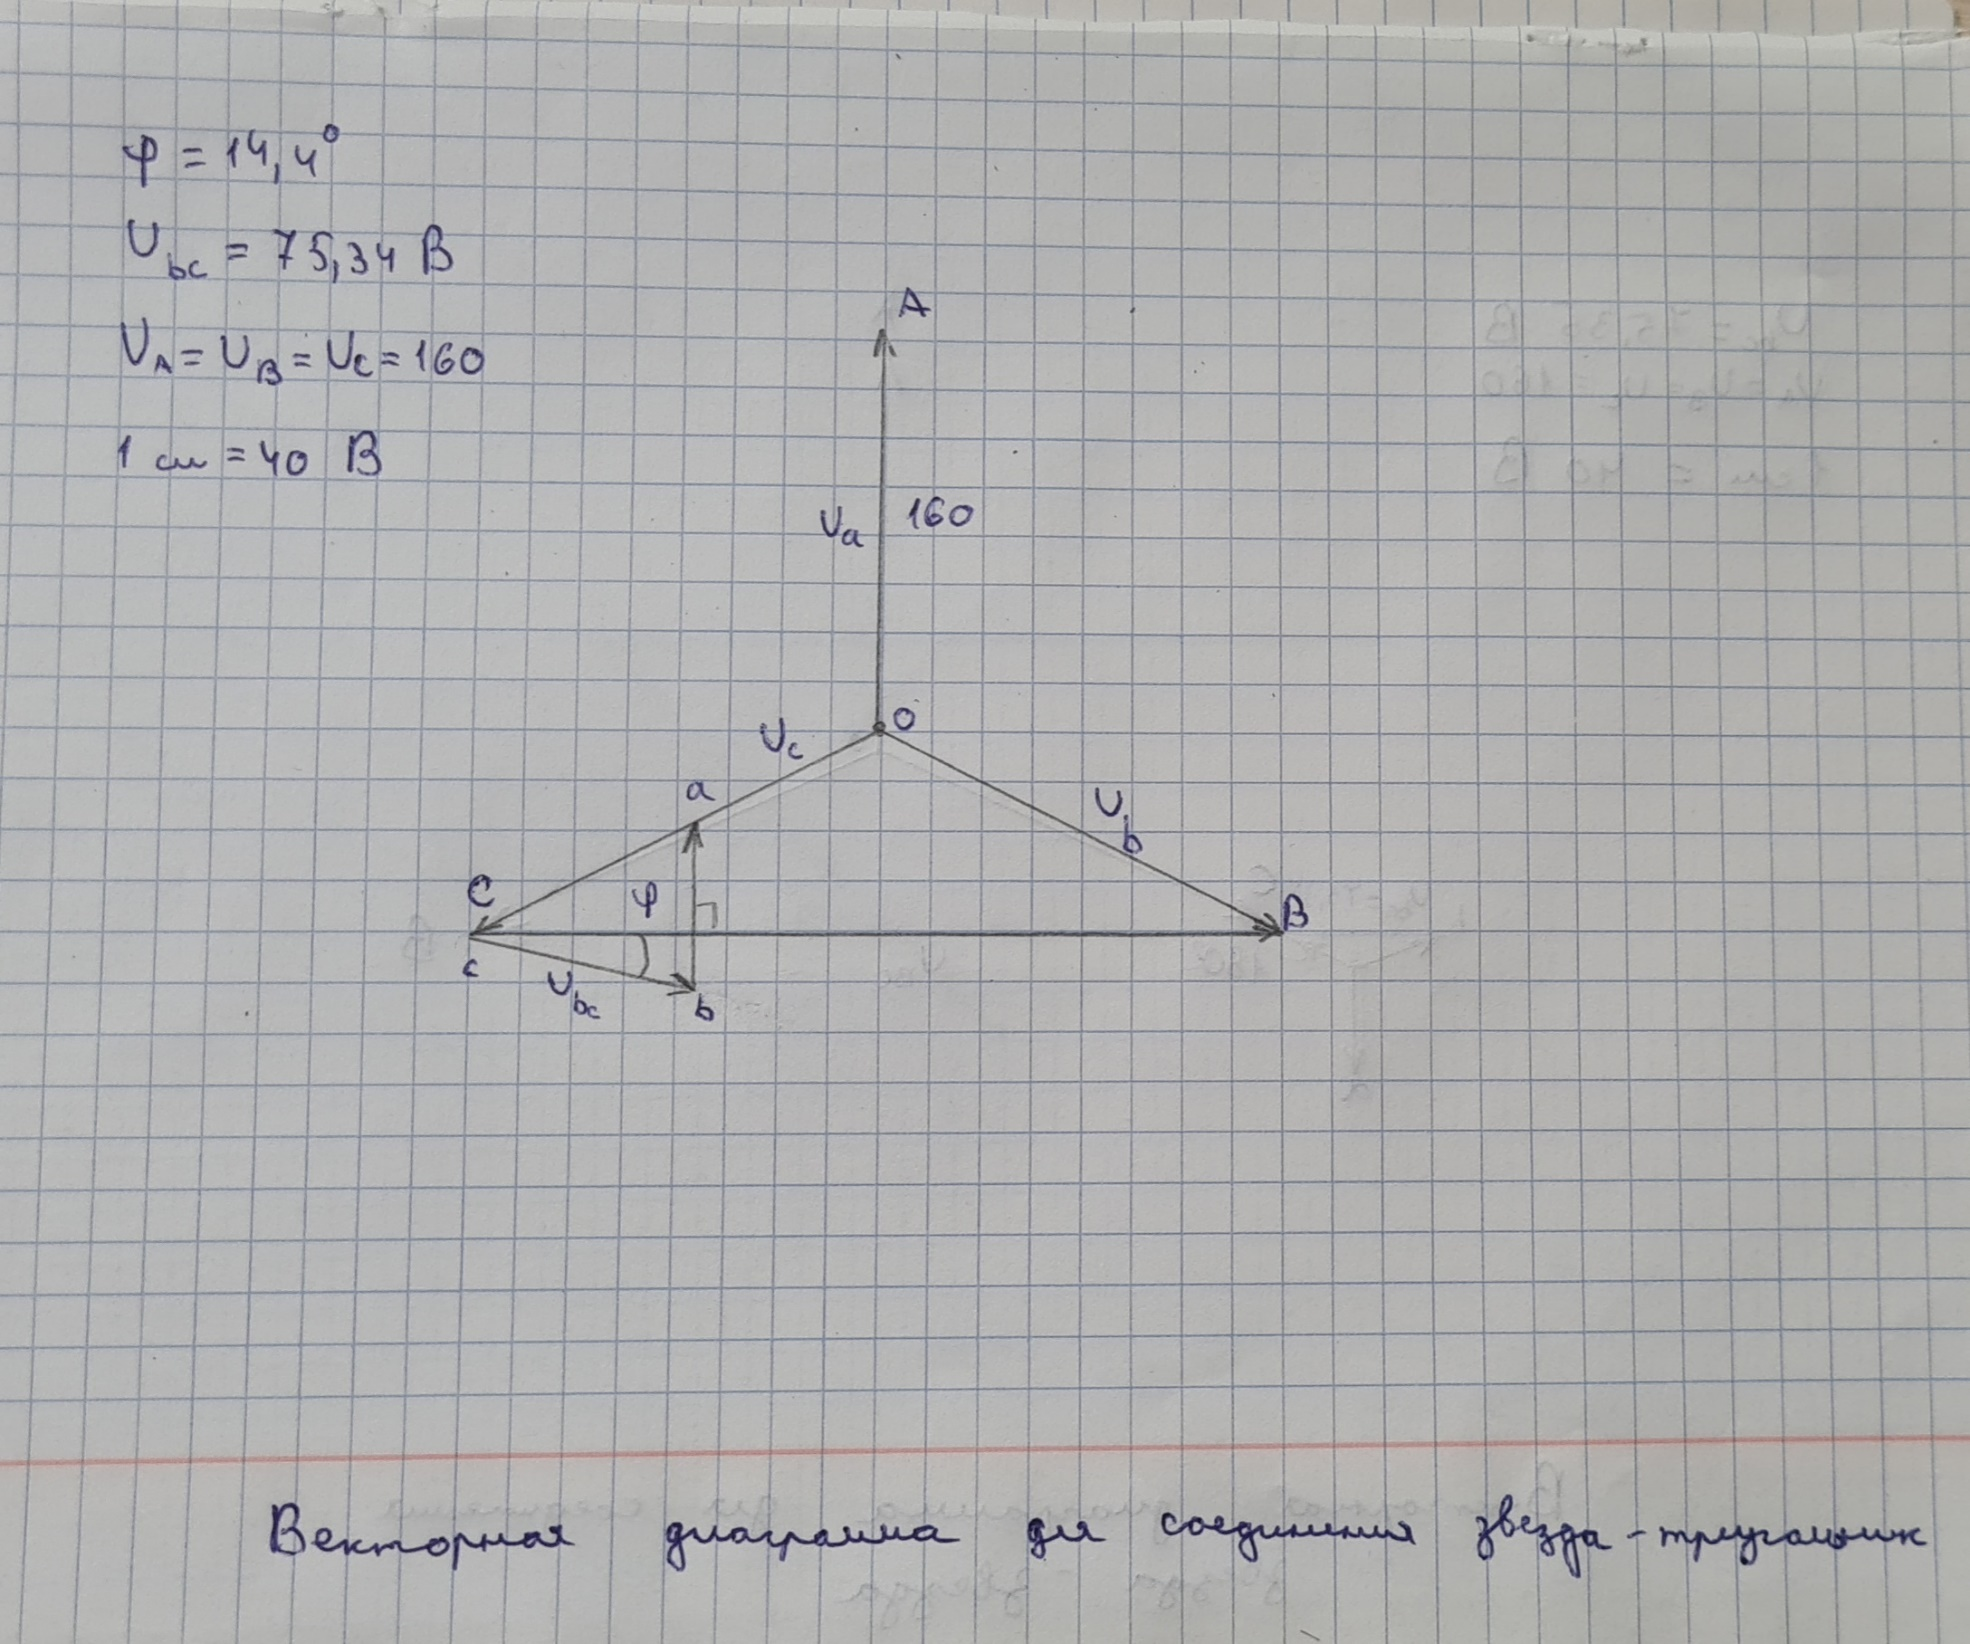 φ = 14,4°
U_bc = 75,34 В
U_A = U_B = U_C = 160
1 см = 40 В
A
U_a 160
O
U_c
a
U_b
C
φ
B
c
U_bc
b
Векторная диаграмма для соединения звезда - треугольник